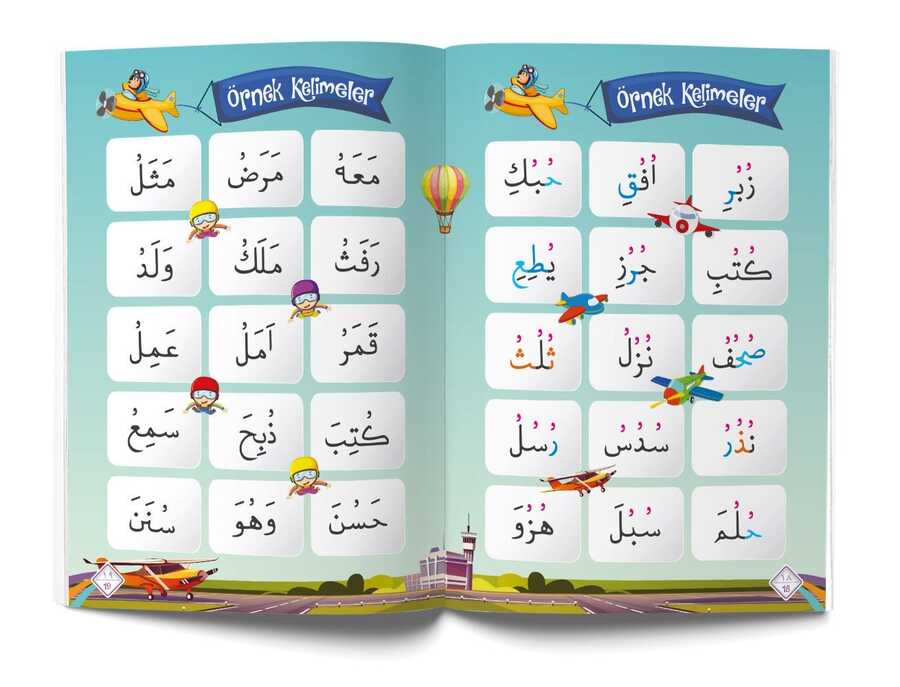 Örnek Kelimeler
زُبُرِ اُفُقِ حُبُكِ
كُتُبِ جُرُزِ يُطِعِ
صُحُفُ نُزُلُ ثُلُثُ
نُذُرُ سُدُسُ رُسُلُ
حُلُمَ سُبُلَ هُزُوَ
١٨
18
Örnek Kelimeler
مَعَهُ مَرَضُ مَثَلُ
رَفَثُ مَلَكُ وَلَدُ
قَمَرُ اَمَلُ عَمِلُ
كُتِبَ ذُبِحَ سَمِعُ
حَسُنَ وَهُوَ سُنَنَ
١٩
19